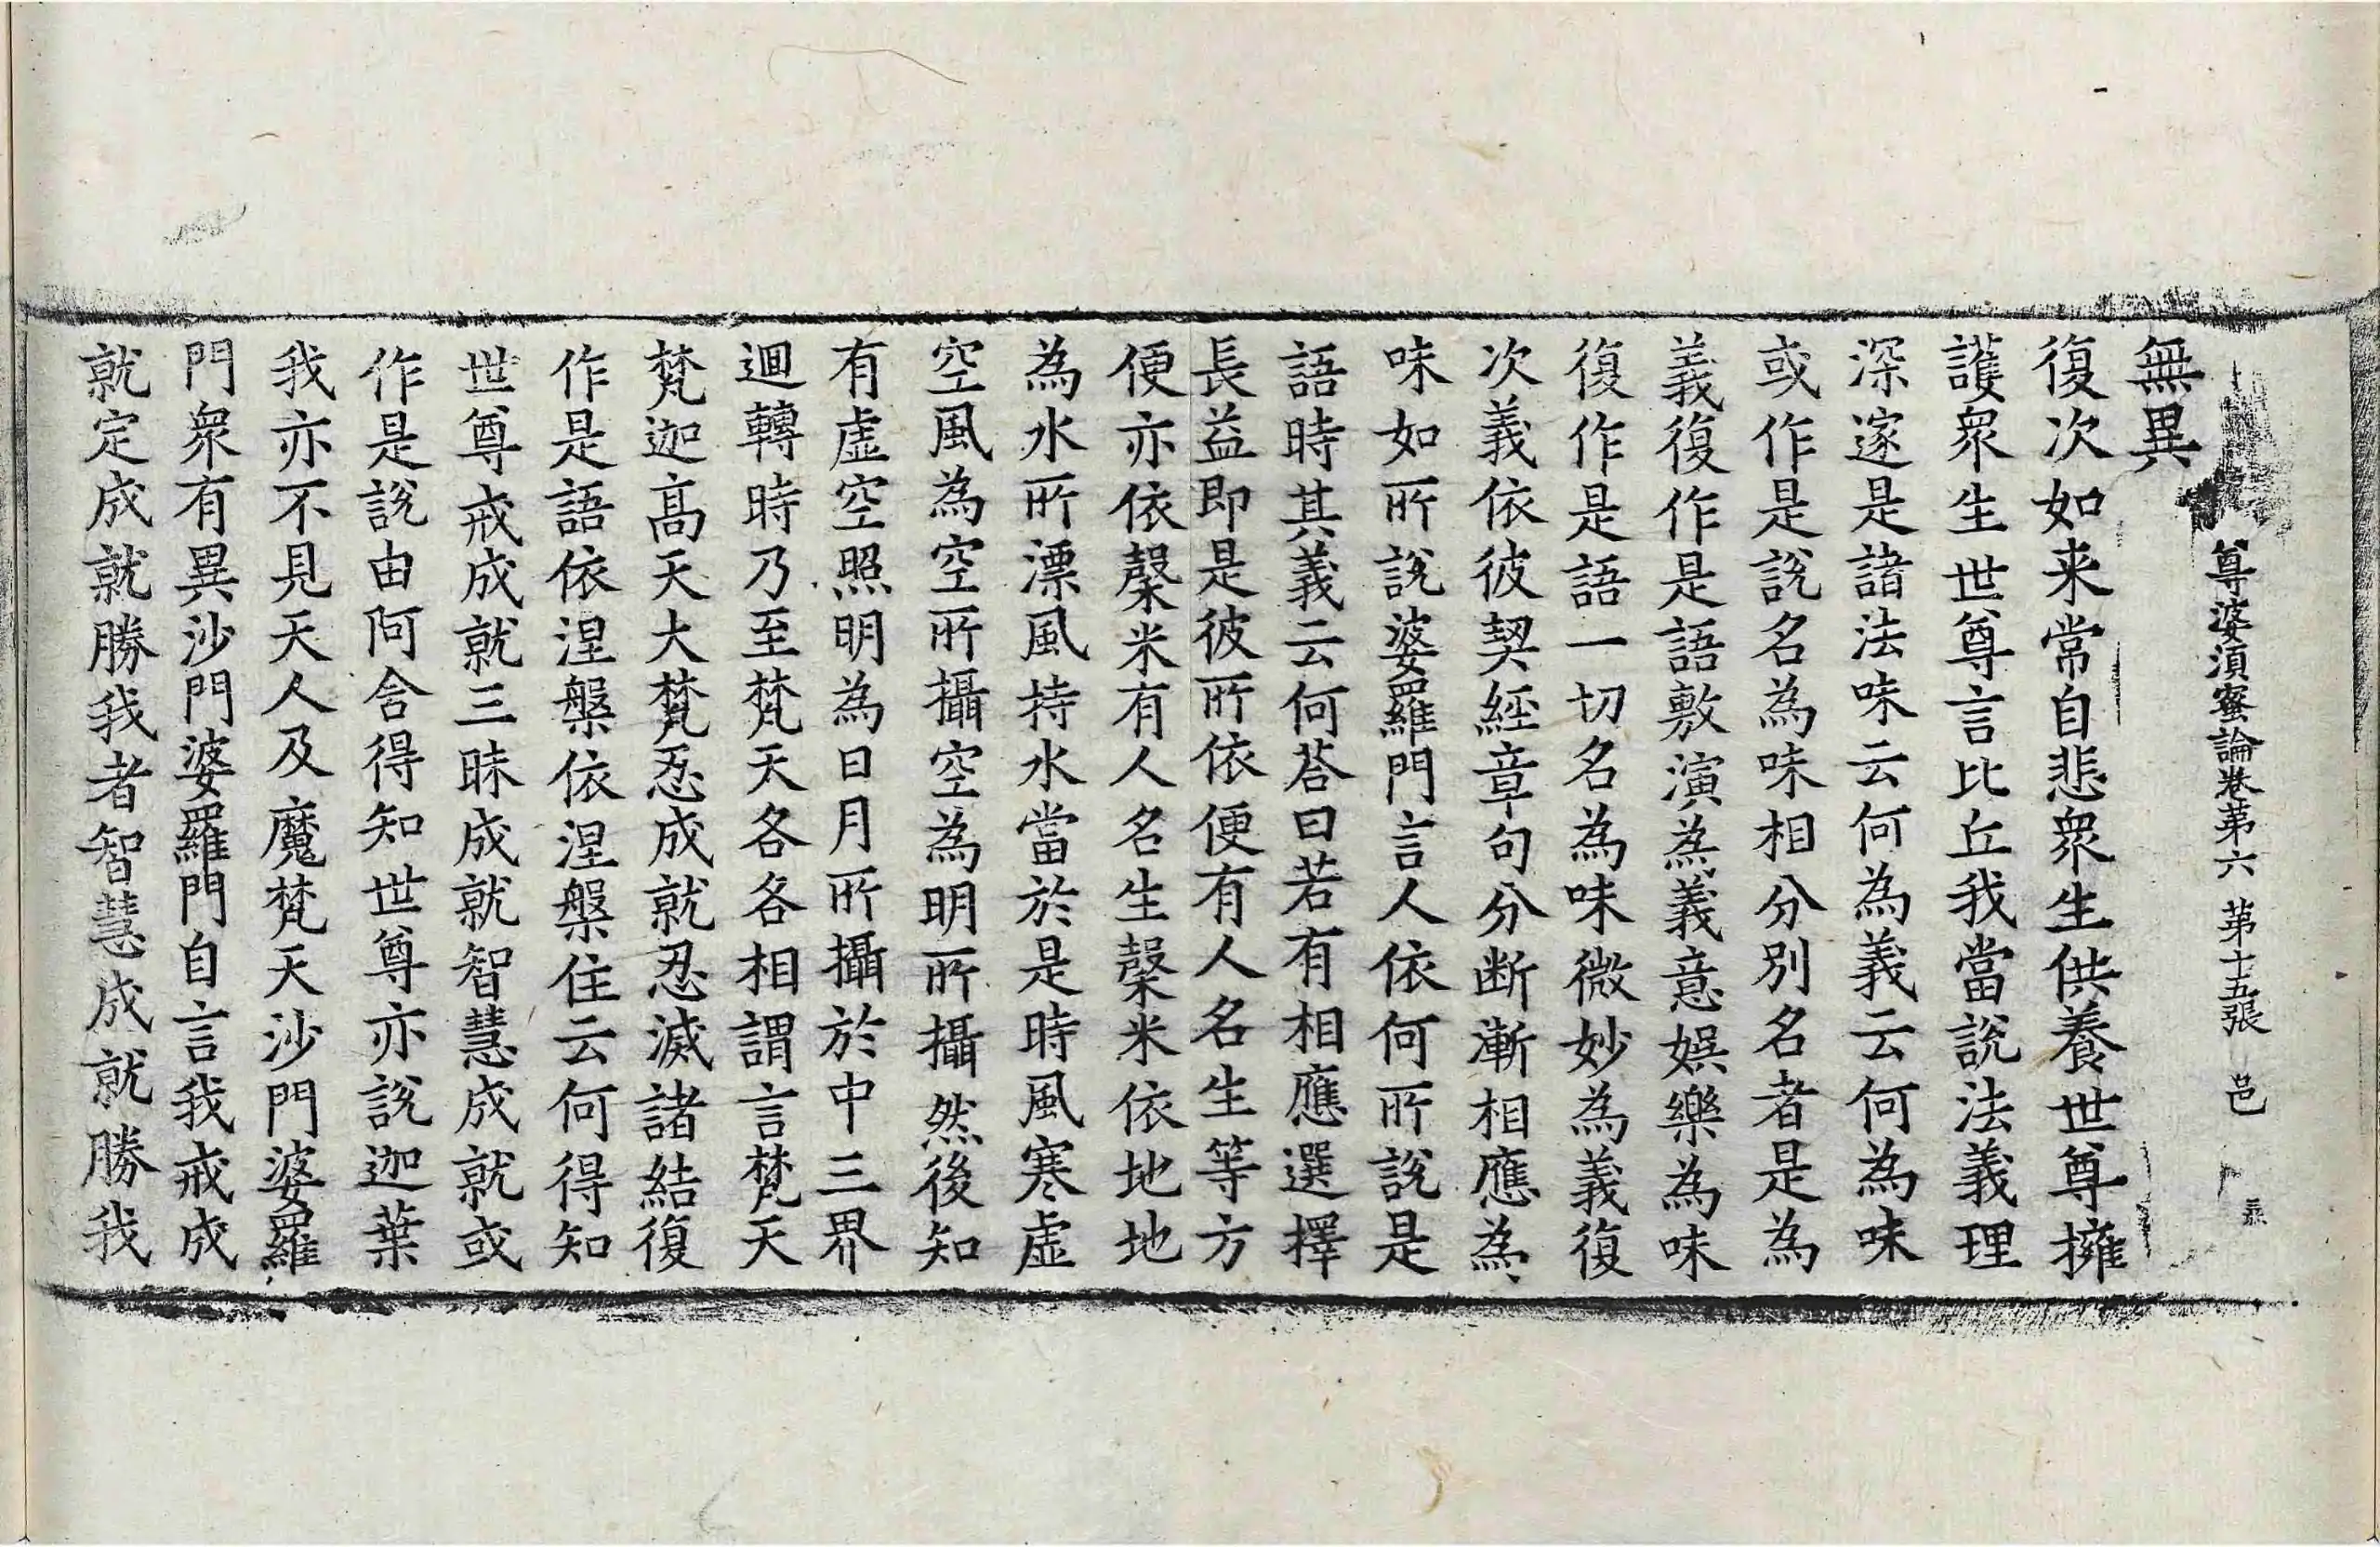 尊婆湏蜜論卷苐六 苐十五張 邑
無異
復次如来常自悲衆生供養世尊擁
護衆生世尊言比丘我當說法義理
深邃是諸法味云何為義云何為味
或作是說名為味相分別名者是為
義復作是語敷演為義意娛樂為味
復作是語一切名為味微妙為義復
次義依彼契經章句分断漸相應為
味如所說婆羅門言人依何所說是
語時其義云何荅曰若有相應選擇
長益即是彼所依便有人名生等方
便亦依槃米有人名生槃米依地地
為水所漂風持水當於是時風寒虛
空風為空所攝空為明所攝然後知
有虛空照明為日月所攝於中三界
迴轉時乃至梵天各各相謂言梵天
梵迦高天大梵忍成就忍滅諸結復
作是語依涅槃依涅槃住云何得知
世尊戒成就三昧成就智慧成就或
作是說由阿含得知世尊亦說迦葉
我亦不見天人及魔梵天沙門婆羅
門衆有異沙門婆羅門自言我戒成
就定成就勝我者智慧成就勝我